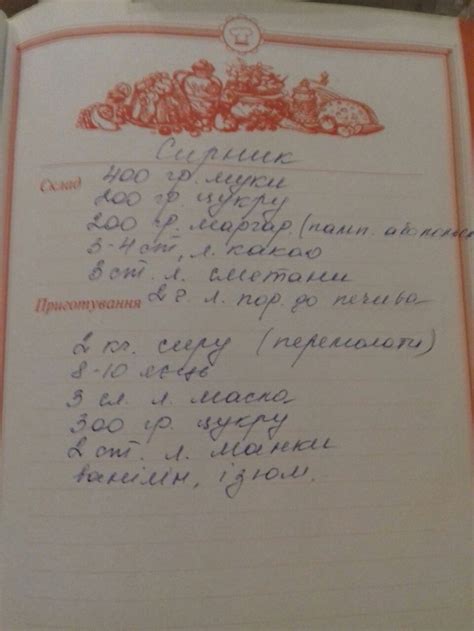 Сирник
Склад 400 гр. муки
200 гр. цукру
200 гр. маргар. (памп. або
3-4 ст. л. какао
3 ст. л. сметани
Приготування 2 г. л. пор. до печива
2 кг. сиру (перемолоти)
8-10 яєць
3 сл. л. масла
300 гр. цукру
2 ст. л. манки
ванілін, ізюм.